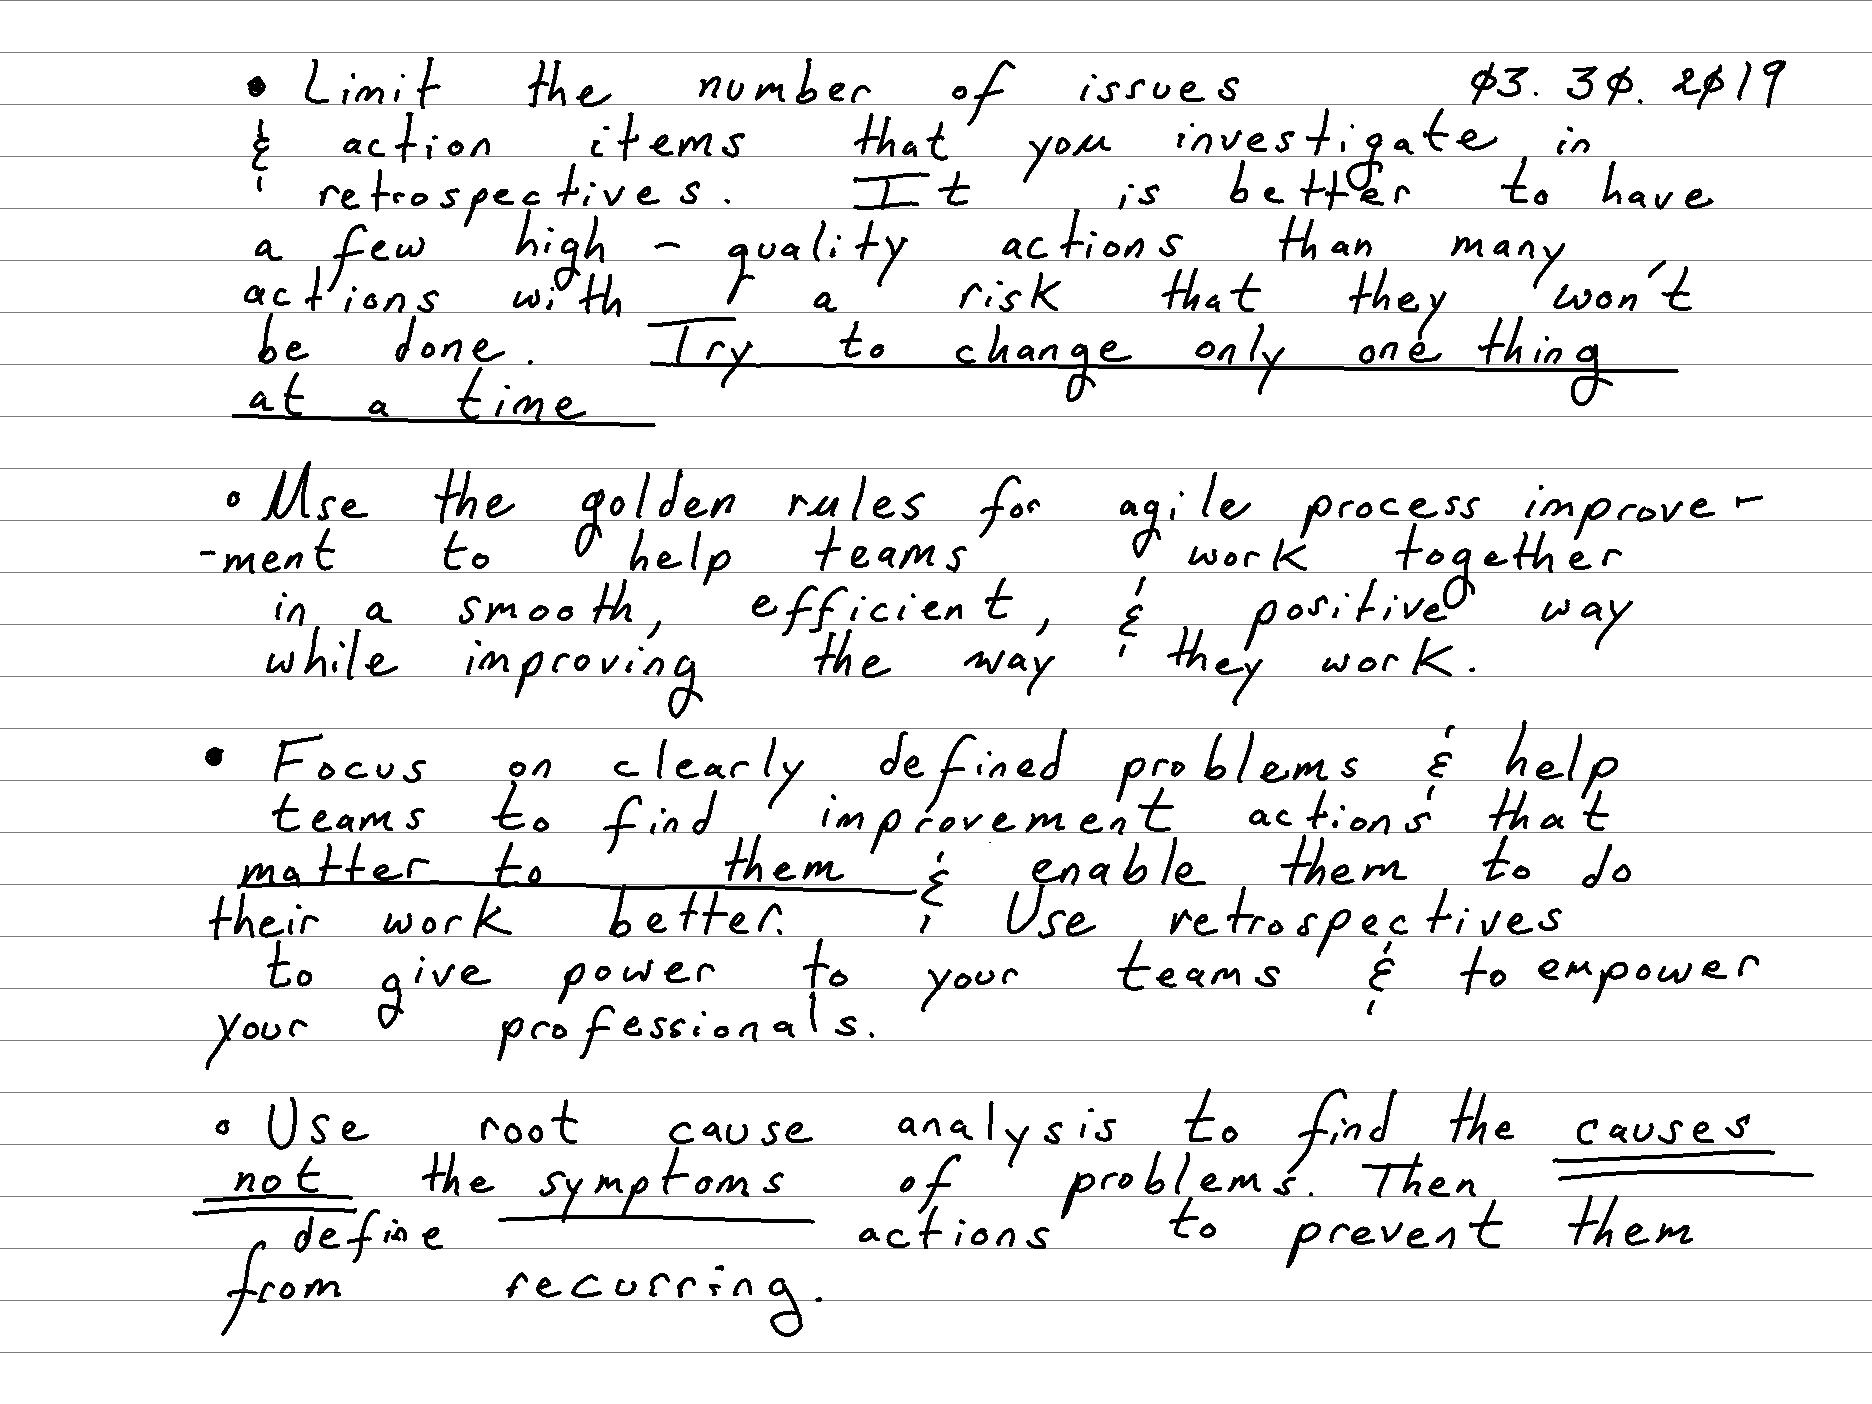 • Limit the number of issues 03.30.2019
& action items that you investigate in
retrospectives. It is better to have
a few high-quality actions than many
actions with a risk that they won't
be done. Try to change only one thing
at a time
• Use the golden rules for agile process improve-
-ment to help teams work together
in a smooth, efficient, & positive way
while improving the way they work.
• Focus on clearly defined problems & help
teams to find improvement actions that
matter to them & enable them to do
their work better. Use retrospectives
to give power to your teams & to empower
your professionals.
• Use root cause analysis to find the causes
not the symptoms of problems. Then
define actions to prevent them
from recurring.